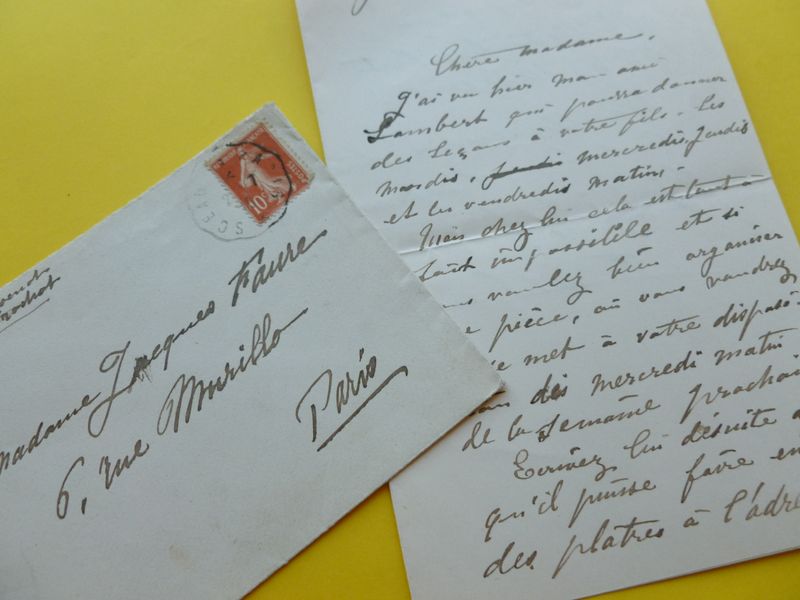 10c
SCEA
madame Jacques Faure
6, rue Murillo
Paris
Chère madame,
J'ai vu hier mon ami
Lambert qui pourra donner
des leçons à votre fils. Les
mardis, jeudi mercredis, jeudis
et les vendredis matins.
Mais chez lui cela est tout à
fait impossible et si
vous voulez bien organiser
pièce, où vous voudrez
se met à votre disposi
dès mercredi matin
de la semaine prochai
Ecrivez lui desuite
qu'il puisse faire en
des platres à l'adre